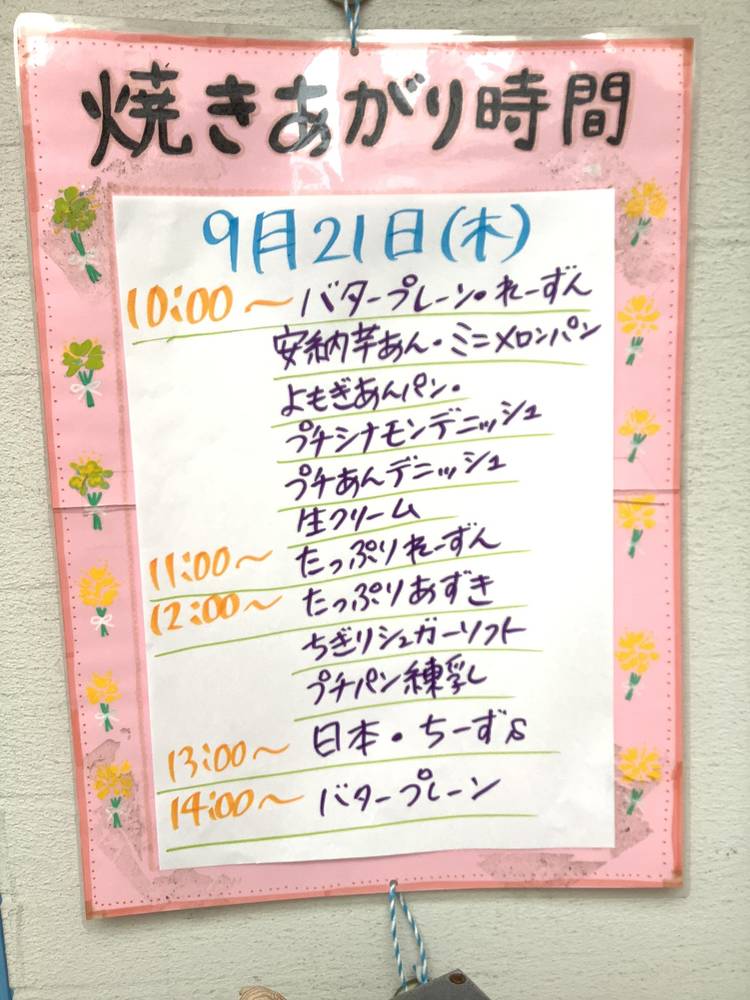 焼きあがり時間
9月21日(木)
10:00〜 バタープレーン・れーずん
安納芋あん・ミニメロンパン
よもぎあんパン・
プチシナモンデニッシュ
プチあんデニッシュ
生クリーム
11:00〜 たっぷりれーずん
12:00〜 たっぷりあずき
ちぎりシュガーソフト
プチパン練乳
13:00〜 日本・ちーずS
14:00〜 バタープレーン